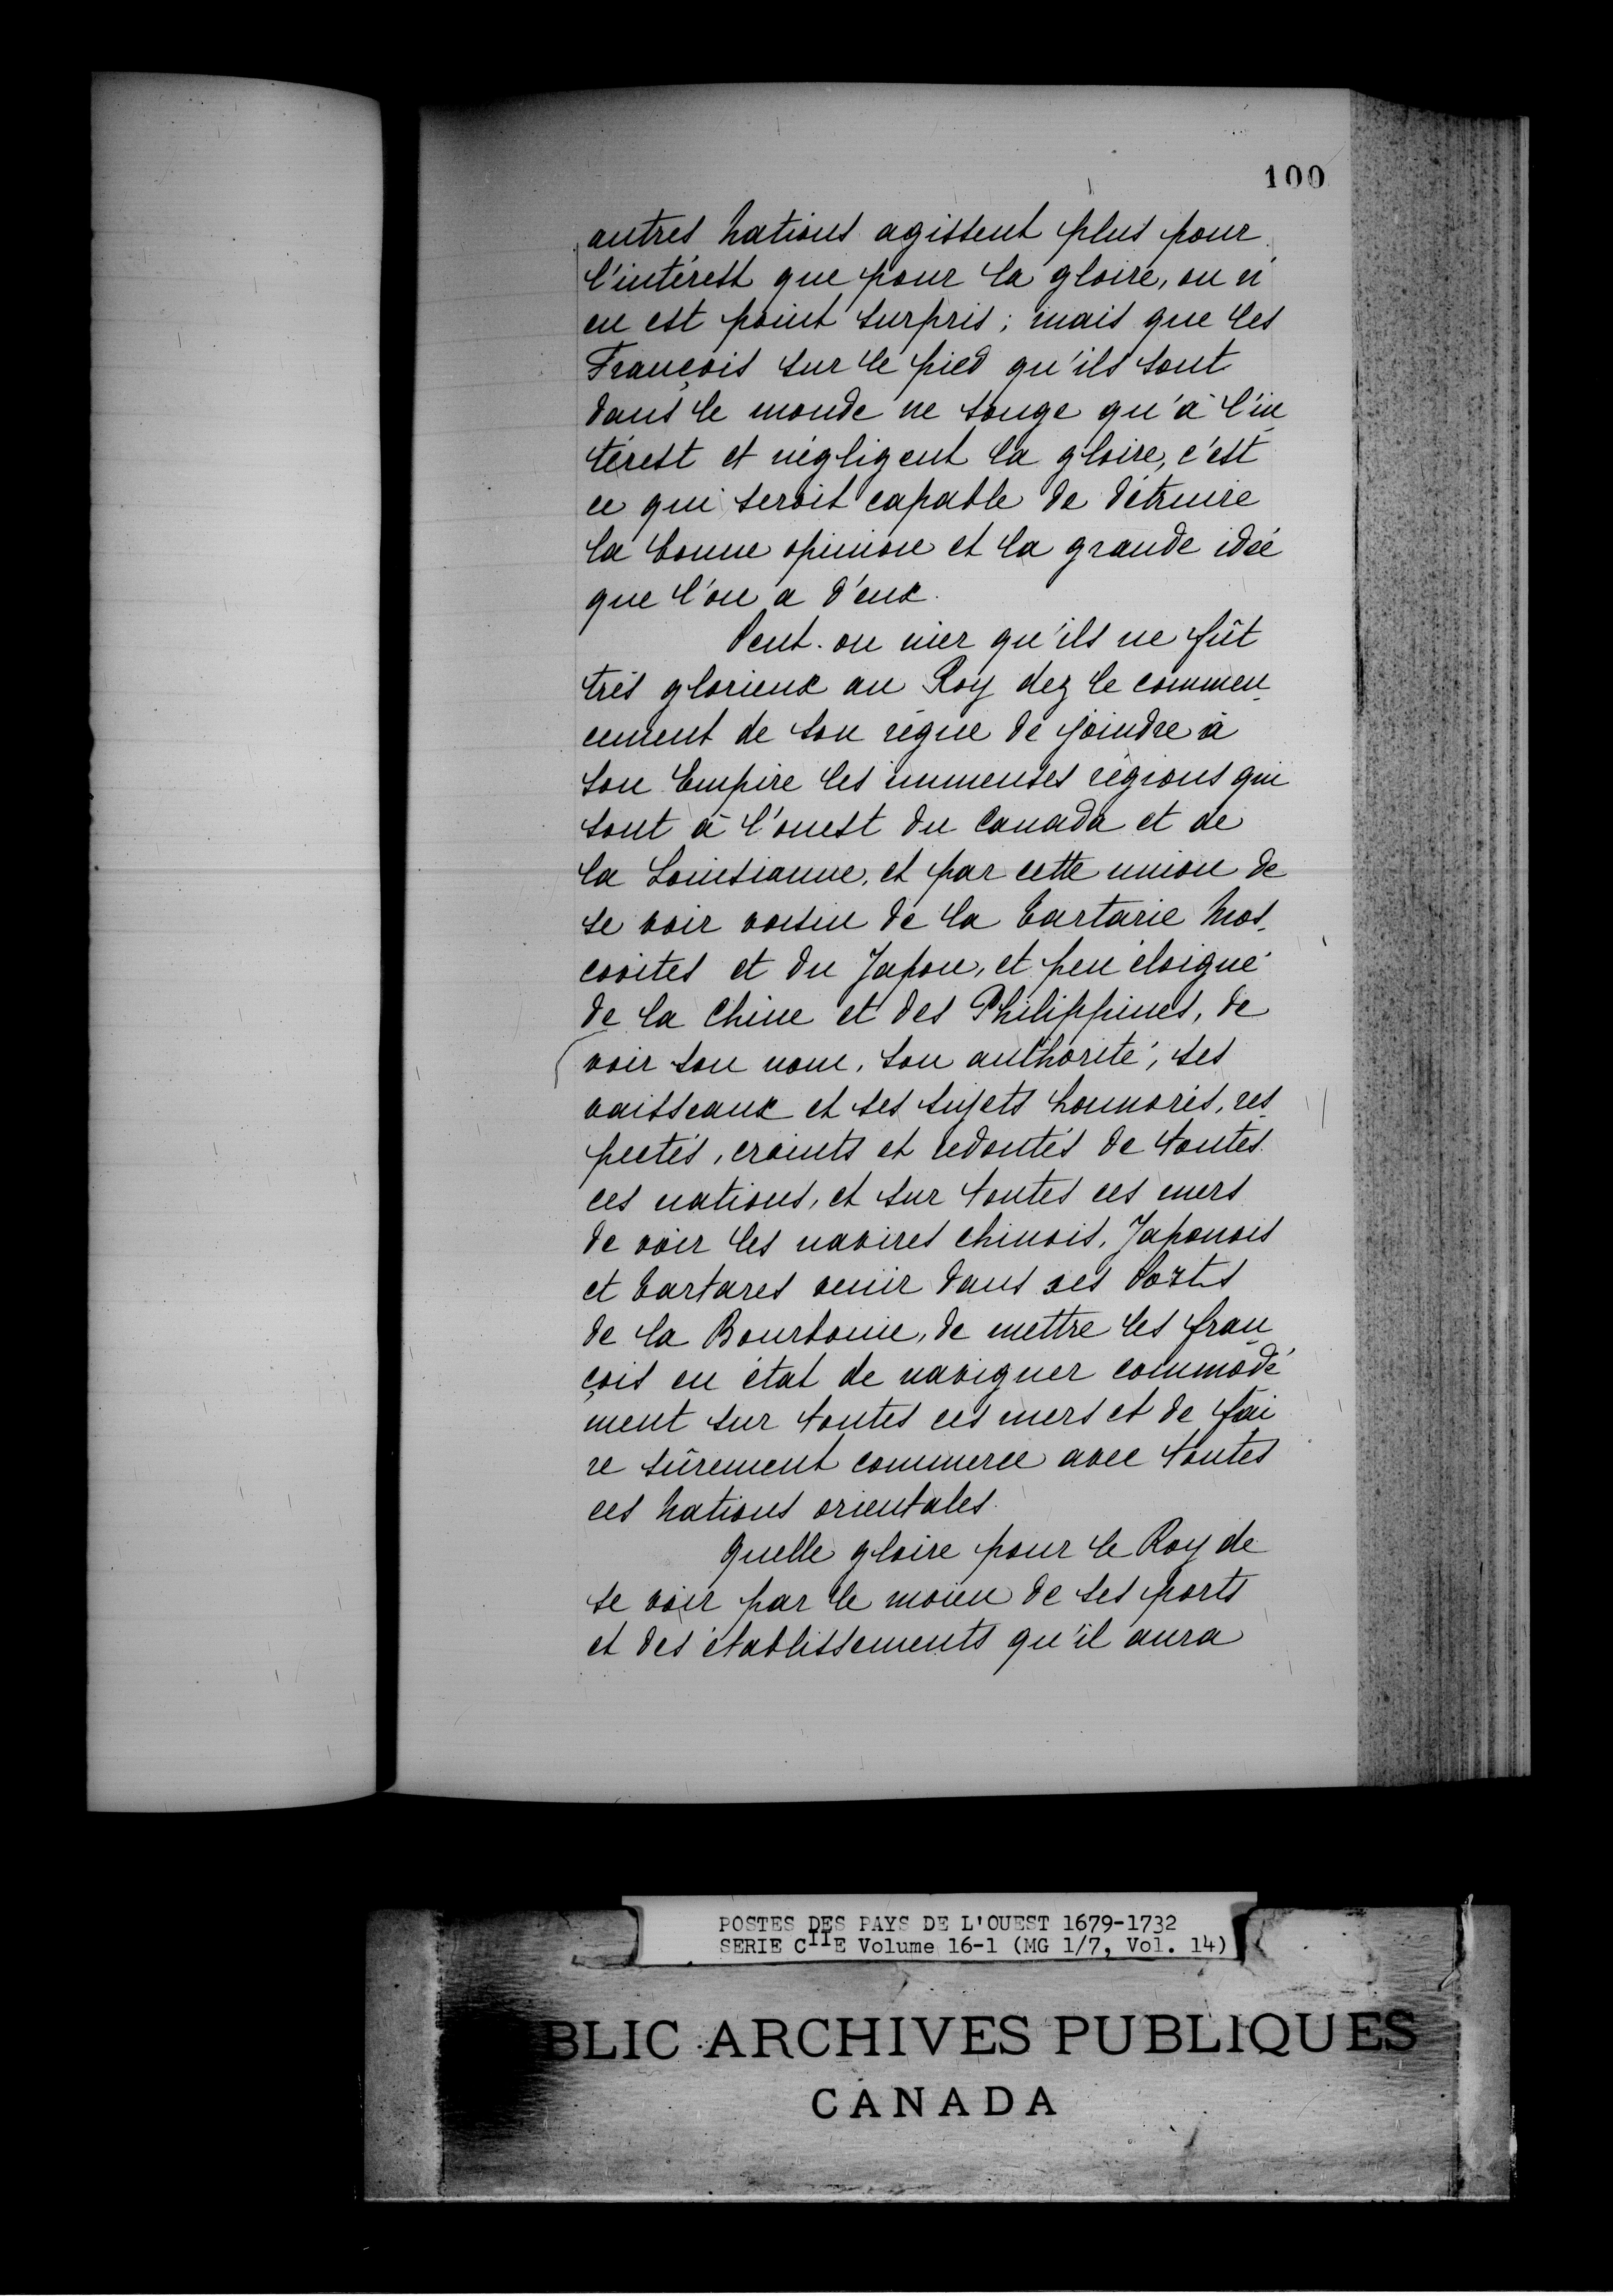 100
autres Nations agissent plus pour
l'intérest que pour la gloire, on n'
en est point surpris ; mais que les
François sur le pied qu'ils sont
dans le monde ne songe qu'à l'in
térest et négligent la gloire, c'est
ce qui seroit capable de détruire
la bonne opinion et la grande idée
que l'on a d'eux.
Peut-on nier qu'ils ne fût
très glorieux au Roy dez le commen_
cement de son règne de joindre à
son Empire les immenses régions qui
sont à l'ouest du Canada et de
la Louisianne, et par cette union de
se voir voisin de la Tartarie Mos_
covites et du Japon, et peu éloigné
de la Chine et des Philippines, de
voir son nom, son authorité, ses
vaisseaux et ses sujets honnorés, res_
pectés, craints et redoutés de toutes
ces nations, et sur toutes ces mers
de voir les navires chinois, Japonois
et Tartares venir dans ses Ports
de la Bourbonie, de mettre les fran_
çois en état de naviguer commodé
ment sur toutes ces mers et de fai
re sûrement commerce avec toutes
ces Nations orientales.
Quelle gloire pour le Roy de
se voir par le moïen de ses ports
et des établissements qu'il aura
POSTES DES PAYS DE L'OUEST 1679-1732
SERIE CIIE Volume 16-1 (MG 1/7, Vol. 14)
BLIC ARCHIVES PUBLIQUES
CANADA